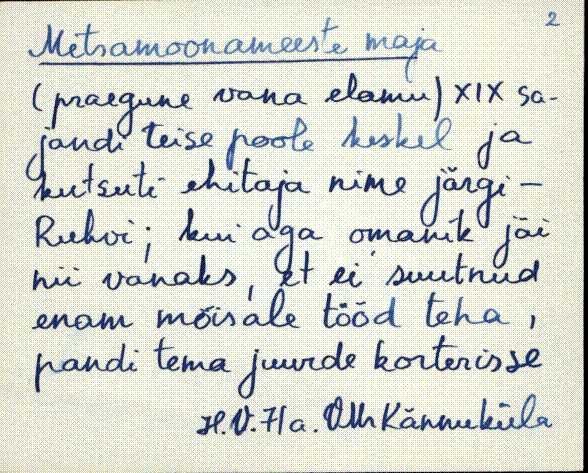 2
Metsamoonameeste maja
(praegune vana elamu) XIX sa-
jandi teise poole keskel ja
kutsuti ehitaja nime järgi –
Ruhvi; kui aga omanik jäi
nii vanaks, et ei suutnud
enam mõisale tööd teha,
pandi tema juurde korterisse
H. V. 71a. Kännuküla